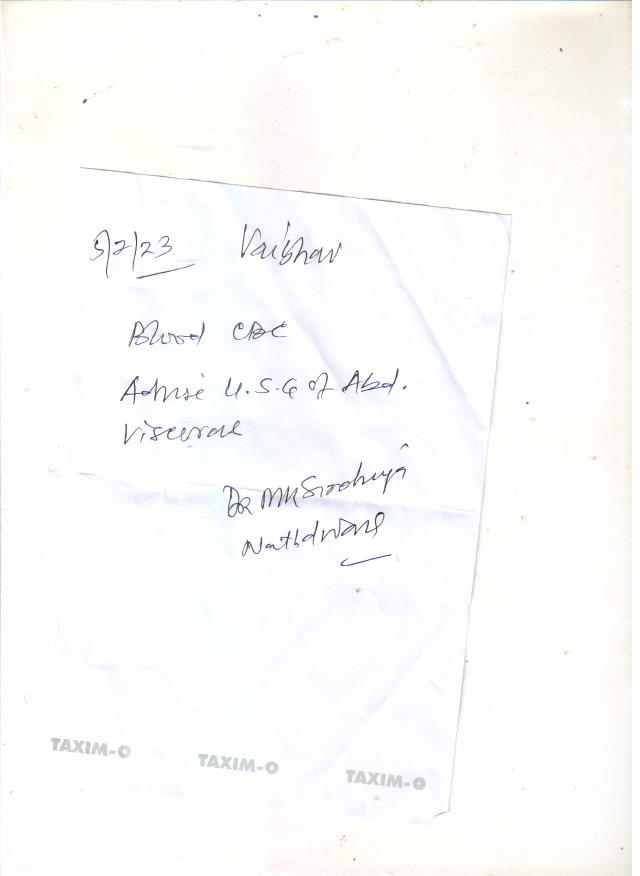 5/2/23 Vaibhav
Blood CBC
Advise U.S.G of Abd.
Viscerae
Dr MK
Nathdwara
TAXIM-O TAXIM-O TAXIM-O